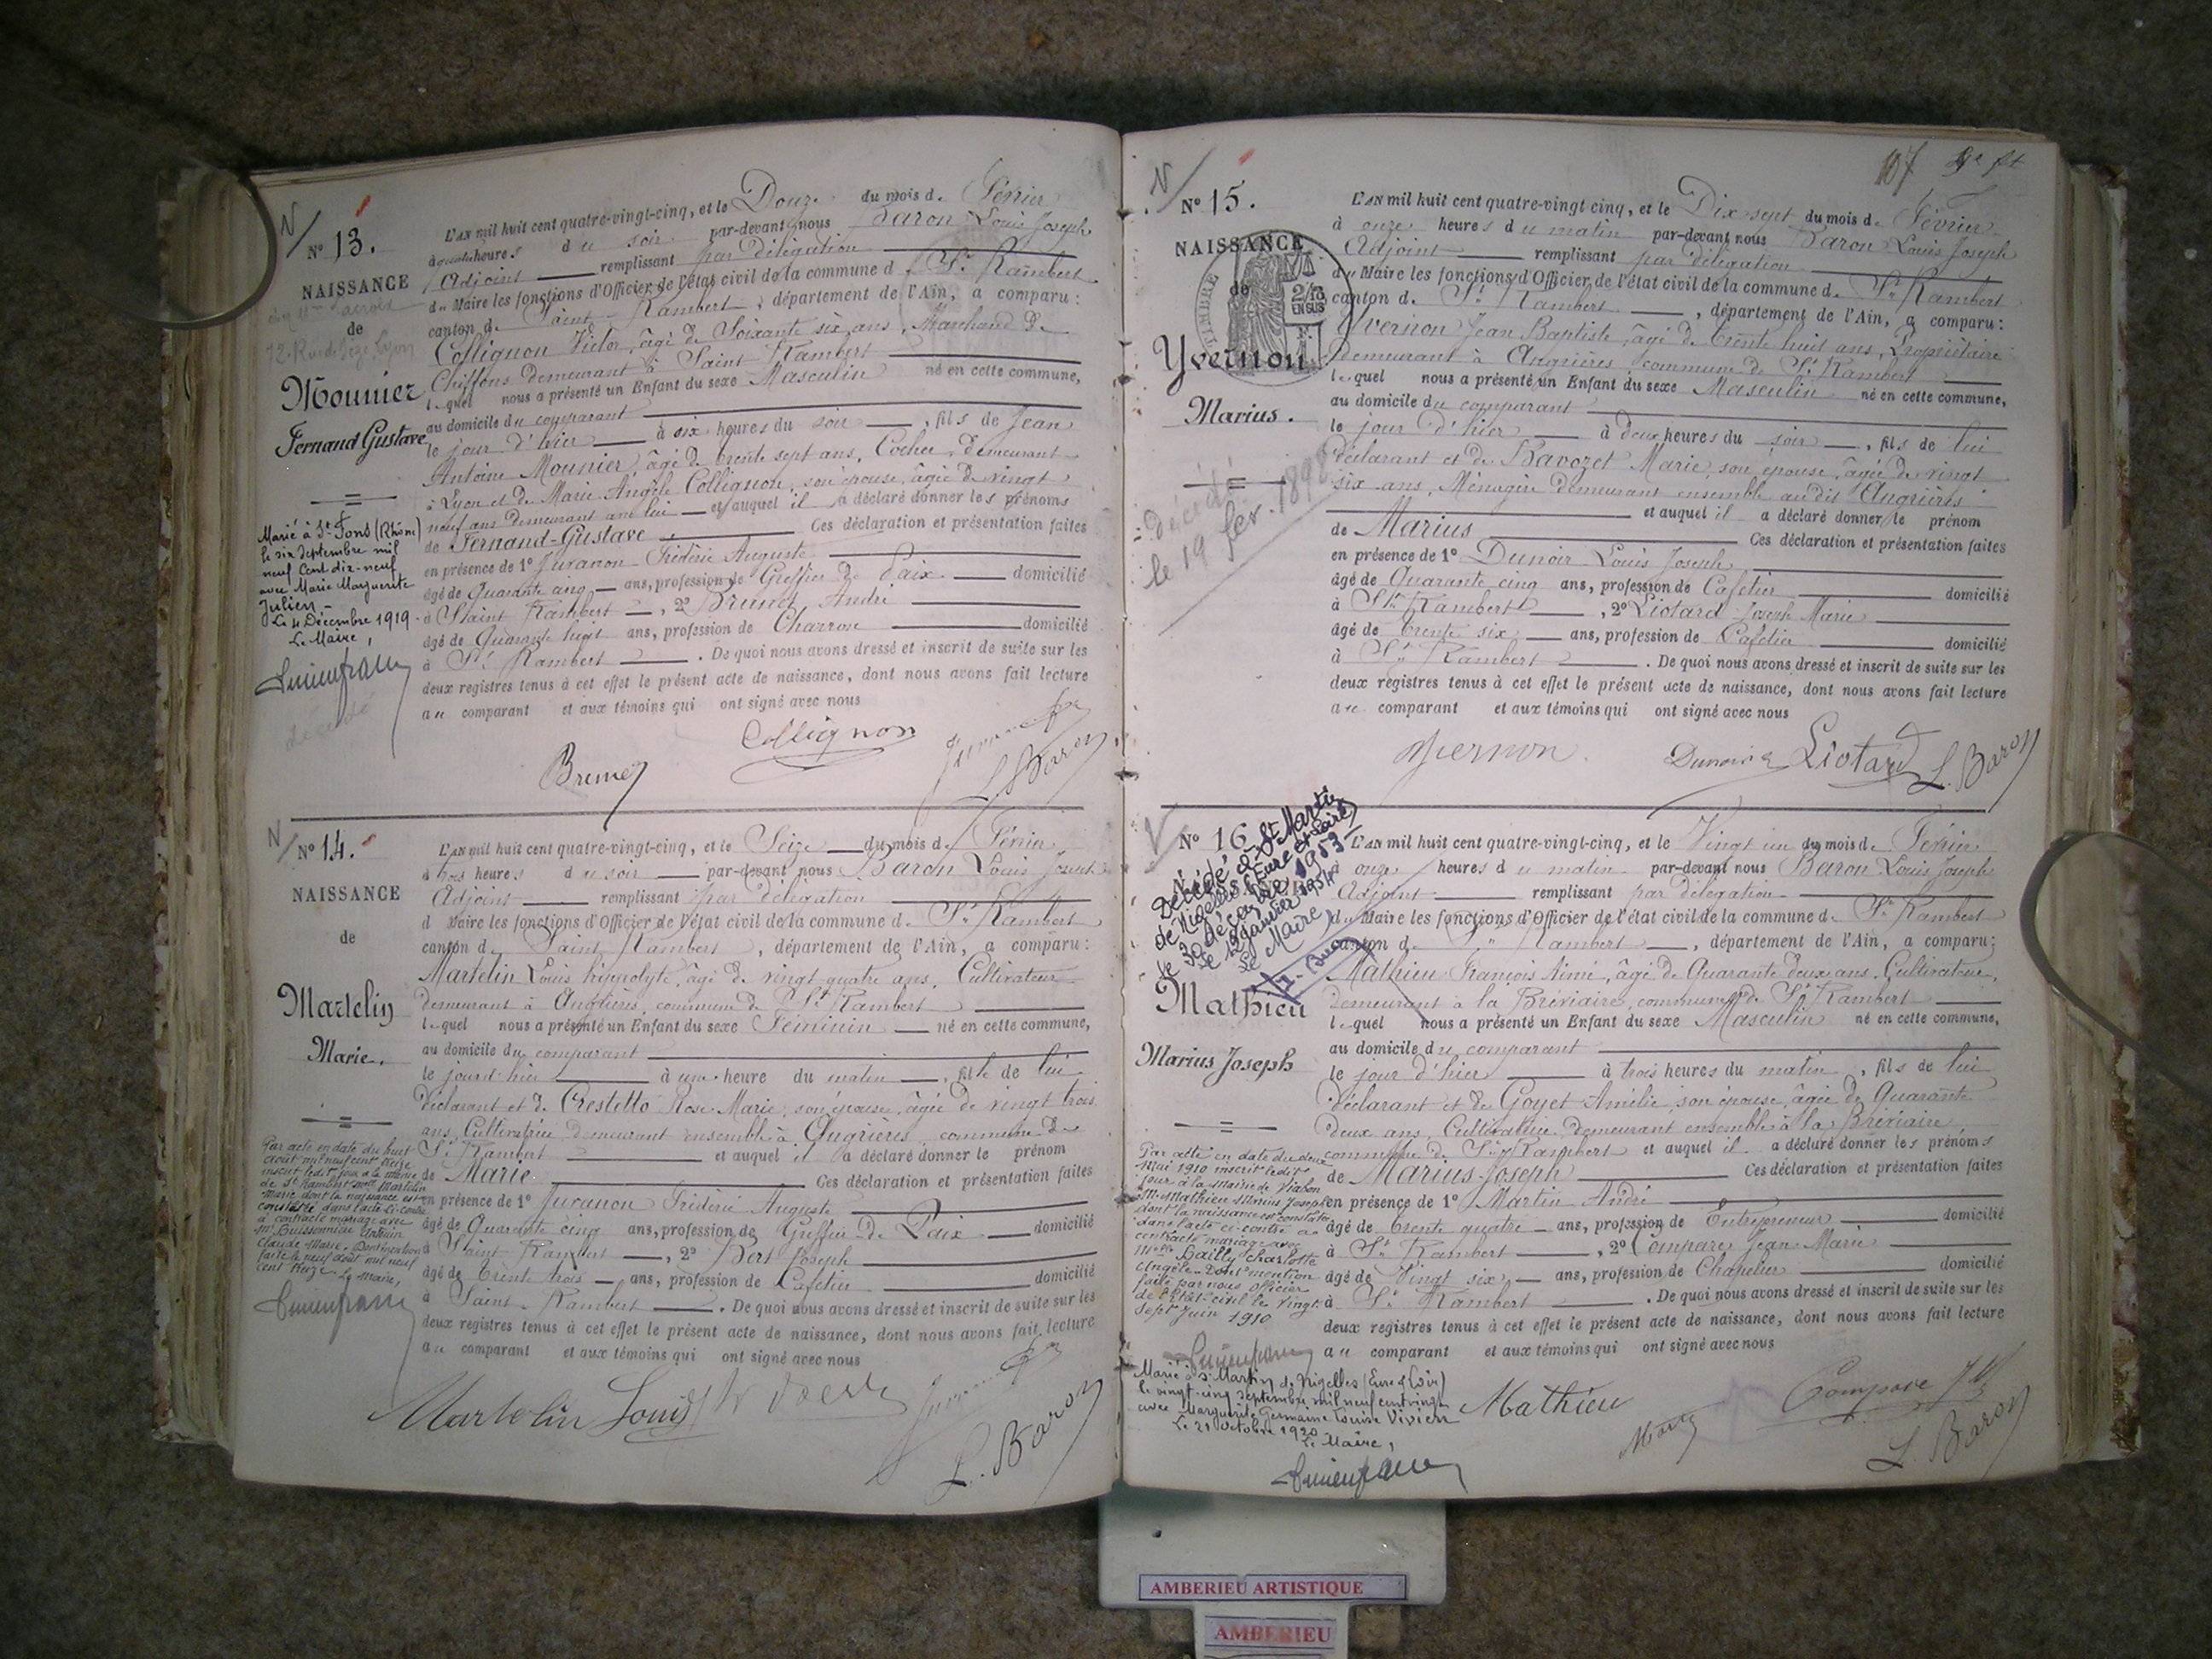 N° 13.
NAISSANCE
de
72. Rue de Sèze Lyon
Mounier
Fernand Gustave
Marié à St Fons (Rhône)
le six Septembre mil
neuf cent dix-neuf
avec Marie Marguerite
Julien -
Le 4 Décembre 1919.
Le Maire,
décédé
L'AN mil huit cent quatre-vingt-cinq, et le Douze du mois de Février
à heures du soir par-devant nous Baron Louis Joseph
Adjoint remplissant par délégation
du Maire les fonctions d'Officier de l'état civil de la commune d. St Rambert
canton d. Saint Rambert, département de l'Ain, a comparu:
Collignon Victor, âgé de Soixante six ans, Marchand de
Chiffons demeurant à Saint Rambert
lequel nous a présenté un Enfant du sexe Masculin né en cette commune,
au domicile du comparant
le jour d'hier à six heures du soir, fils de Jean
Antoine Mounier, âgé de trente sept ans, Cocher, demeurant
à Lyon et de Marie Angèle Collignon, son épouse, âgée de vingt
neuf ans demeurant avec lui et auquel il a déclaré donner les prénoms
de Fernand-Gustave Ces déclaration et présentation faites
en présence de 1° Juranon Frédéric Auguste
âgé de Quarante cinq ans, profession de Greffier de Paix domicilié
à Saint Rambert, 2° Brunet André
âgé de Quarante huit ans, profession de Charron domicilié
à St Rambert. De quoi nous avons dressé et inscrit de suite sur les
deux registres tenus à cet effet le présent acte de naissance, dont nous avons fait lecture
au comparant et aux témoins qui ont signé avec nous
Collignon
Brunet
L. Baron
N° 14.
NAISSANCE
de
Martelin
Marie.
Par acte en date du huit
août mil neuf cent treize
inscrit ledit jour à la mairie
de St Rambert Melle Martelin
Marie dont la naissance est
constatée dans l'acte ci-contre
a contracté mariage avec
Mr Buissonnier
Claude Marie. Dont mention
faite le neuf août mil neuf
cent treize Le Maire,
L'AN mil huit cent quatre-vingt-cinq, et le Seize du mois d. Février
à trois heures du soir par-devant nous Baron Louis Joseph
Adjoint remplissant par délégation
d Maire les fonctions d'Officier de l'état civil de la commune d. St Rambert
canton d. Saint Rambert, département de l'Ain, a comparu:
Martelin Louis hippolyte, âgé de vingt quatre ans, Cultivateur
demeurant à Angrières, commune de St Rambert
lequel nous a présenté un Enfant du sexe Féminin né en cette commune,
au domicile du comparant
le jour d'hier à une heure du matin, fille de lui
déclarant et de Crestetto Rose Marie, son épouse, âgée de vingt trois
ans, Cultivatrice demeurant ensemble à Angrières, commune de
St Rambert et auquel il a déclaré donner le prénom
de Marie Ces déclaration et présentation faites
en présence de 1° Juranon Frédéric Auguste
âgé de Quarante cinq ans, profession de Greffier de Paix domicilié
à Saint Rambert, 2° Joseph
âgé de trente trois ans, profession de Cafetier domicilié
à Saint Rambert. De quoi nous avons dressé et inscrit de suite sur les
deux registres tenus à cet effet le présent acte de naissance, dont nous avons fait lecture
au comparant et aux témoins qui ont signé avec nous
Martelin Louis
L. Baron
107
N° 15.
NAISSANCE
de
TIMBRE
2/10
EN SUS
Yvernon
Marius.
décédé
le 19 fev. 1898
L'AN mil huit cent quatre-vingt cinq, et le Dix sept du mois de Février
à onze heures du matin par-devant nous Baron Louis Joseph
Adjoint remplissant par délégation
du Maire les fonctions d'Officier de l'état civil de la commune d. St Rambert
canton d. St Rambert, département de l'Ain, a comparu:
Yvernon Jean Baptiste, âgé de trente huit ans, Propriétaire
demeurant à Angrières, commune de St Rambert
lequel nous a présenté un Enfant du sexe Masculin né en cette commune,
au domicile du comparant
le jour d'hier à deux heures du soir, fils de lui
déclarant et de Bavozet Marie, son épouse, âgée de vingt
six ans, Ménagère demeurant ensemble audit Angrières
et auquel il a déclaré donner le prénom
de Marius Ces déclaration et présentation faites
en présence de 1° Dunoir Louis Joseph
âgé de Quarante cinq ans, profession de Cafetier domicilié
à St Rambert, 2° Liotard Joseph Marie
âgé de trente six ans, profession de Cafetier domicilié
à St Rambert. De quoi nous avons dressé et inscrit de suite sur les
deux registres tenus à cet effet le présent acte de naissance, dont nous avons fait lecture
au comparant et aux témoins qui ont signé avec nous
Yvernon
Dunoir
Liotard
L. Baron
N° 16
Décédé à St Martin
de Nigelles (Eure et Loire)
le 30 décembre 1953
Le 12 janvier 1954
Le Maire
Mathieu
Marius Joseph
Par acte en date du deux
Mai 1910 inscrit ledit
jour à la Mairie de Viabon
Mr Mathieu Marius Joseph
dont la naissance est constatée
dans l'acte ci-contre a
contracté mariage avec
Melle Bailly Charlotte
Angèle. Dont mention
faite par nous officier
de l'Etat civil le vingt
sept Juin 1910
Marié à St Martin de Nigelles (Eure & Loir)
le vingt-cinq septembre mil neuf cent vingt
avec Marguerite Germaine Louise Vivien
Le 21 Octobre 1920
Le Maire,
L'AN mil huit cent quatre-vingt-cinq, et le Vingt un du mois de Février
à onze heures du matin par-devant nous Baron Louis Joseph
Adjoint remplissant par délégation
du Maire les fonctions d'Officier de l'état civil de la commune d. St Rambert
canton d. St Rambert, département de l'Ain, a comparu:
Mathieu François Aimé, âgé de Quarante deux ans, Cultivateur,
demeurant à la Bréviaire, commune de St Rambert
lequel nous a présenté un Enfant du sexe Masculin né en cette commune,
au domicile du comparant
le jour d'hier à trois heures du matin, fils de lui
déclarant et de Goyet Amélie, son épouse, âgée de Quarante
deux ans, Cultivatrice demeurant ensemble à la Bréviaire,
commune de St Rambert et auquel il a déclaré donner les prénoms
de Marius-Joseph Ces déclaration et présentation faites
en présence de 1° Martin André
âgé de trente quatre ans, profession de Entrepreneur domicilié
à St Rambert, 2° Compare Jean Marie
âgé de Vingt six ans, profession de Chapelier domicilié
à St Rambert. De quoi nous avons dressé et inscrit de suite sur les
deux registres tenus à cet effet le présent acte de naissance, dont nous avons fait lecture
au comparant et aux témoins qui ont signé avec nous
Mathieu
Compare JM
L. Baron
AMBERIEU ARTISTIQUE
AMBERIEU